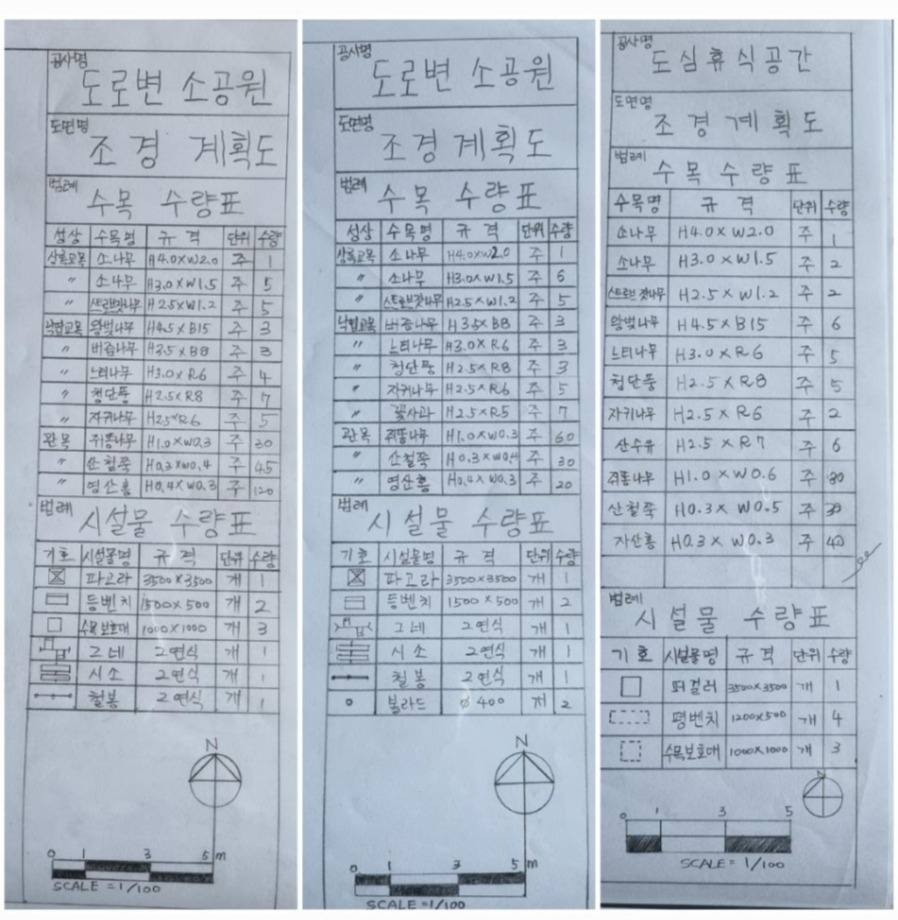 공사명
도로변 소공원
도면명
조경 계획도
범례
수목 수량표
성상 수목명 규격 단위 수량
상록교목 소나무 H4.0×W2.0 주 1
〃 소나무 H3.0×W1.5 주 5
〃 스트로브잣나무 H2.5×W1.2 주 5
낙엽교목 왕벚나무 H4.5×B15 주 3
〃 버즘나무 H3.5×B8 주 3
〃 느티나무 H3.0×R6 주 4
〃 청단풍 H2.5×R8 주 7
〃 자귀나무 H2.5×R6 주 5
관목 쥐똥나무 H1.0×W0.3 주 30
〃 산철쭉 H0.3×W0.4 주 45
〃 영산홍 H0.4×W0.3 주 120
범례
시설물 수량표
기호 시설물명 규격 단위 수량
파고라 3500×3500 개 1
등벤치 1500×500 개 2
수목보호대 1000×1000 개 3
그네 2연식 개 1
시소 2연식 개 1
철봉 2연식 개 1
N
0 1 3 5m
SCALE=1/100
공사명
도로변 소공원
도면명
조경 계획도
범례
수목 수량표
성상 수목명 규격 단위 수량
상록교목 소나무 H4.0×W2.0 주 1
〃 소나무 H3.0×W1.5 주 6
〃 스트로브잣나무 H2.5×W1.2 주 5
낙엽교목 버즘나무 H3.5×B8 주 3
〃 느티나무 H3.0×R6 주 3
〃 청단풍 H2.5×R8 주 3
〃 자귀나무 H2.5×R6 주 5
〃 꽃사과 H2.5×R5 주 7
관목 쥐똥나무 H1.0×W0.3 주 60
〃 산철쭉 H0.3×W0.4 주 30
〃 영산홍 H0.4×W0.3 주 20
범례
시설물 수량표
기호 시설물명 규격 단위 수량
파고라 3500×3500 개 1
등벤치 1500×500 개 2
그네 2연식 개 1
시소 2연식 개 1
철봉 2연식 개 1
볼라드 ø400 개 2
N
0 1 3 5m
SCALE=1/100
공사명
도심휴식공간
도면명
조경계획도
범례
수목 수량표
수목명 규격 단위 수량
소나무 H4.0×W2.0 주 1
소나무 H3.0×W1.5 주 2
스트로브잣나무 H2.5×W1.2 주 2
왕벚나무 H4.5×B15 주 6
느티나무 H3.0×R6 주 5
청단풍 H2.5×R8 주 5
자귀나무 H2.5×R6 주 2
산수유 H2.5×R7 주 6
쥐똥나무 H1.0×W0.6 주 80
산철쭉 H0.3×W0.5 주 30
자산홍 H0.3×W0.3 주 40
범례
시설물 수량표
기호 시설물명 규격 단위 수량
퍼걸러 3500×3500 개 1
평벤치 1200×500 개 4
수목보호대 1000×1000 개 3
N
0 1 5
SCALE=1/100